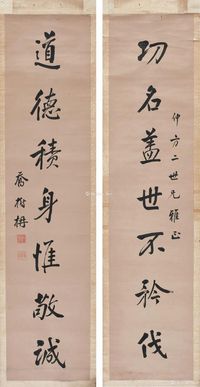 功名盖世不矜伐
仲方二世兄雅正
道德積身惟敬誠
喬樹枏